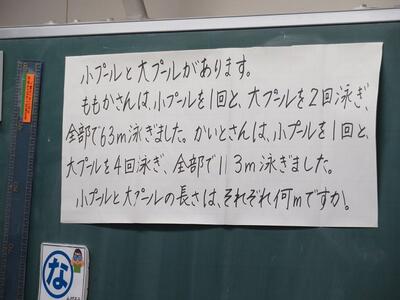 小プールと大プールがあります。
ももかさんは、小プールを1回と、大プールを2回泳ぎ、
全部で63m泳ぎました。かいとさんは、小プールを1回と、
大プールを4回泳ぎ、全部で113m泳ぎました。
小プールと大プールの長さは、それぞれ何mですか。
な